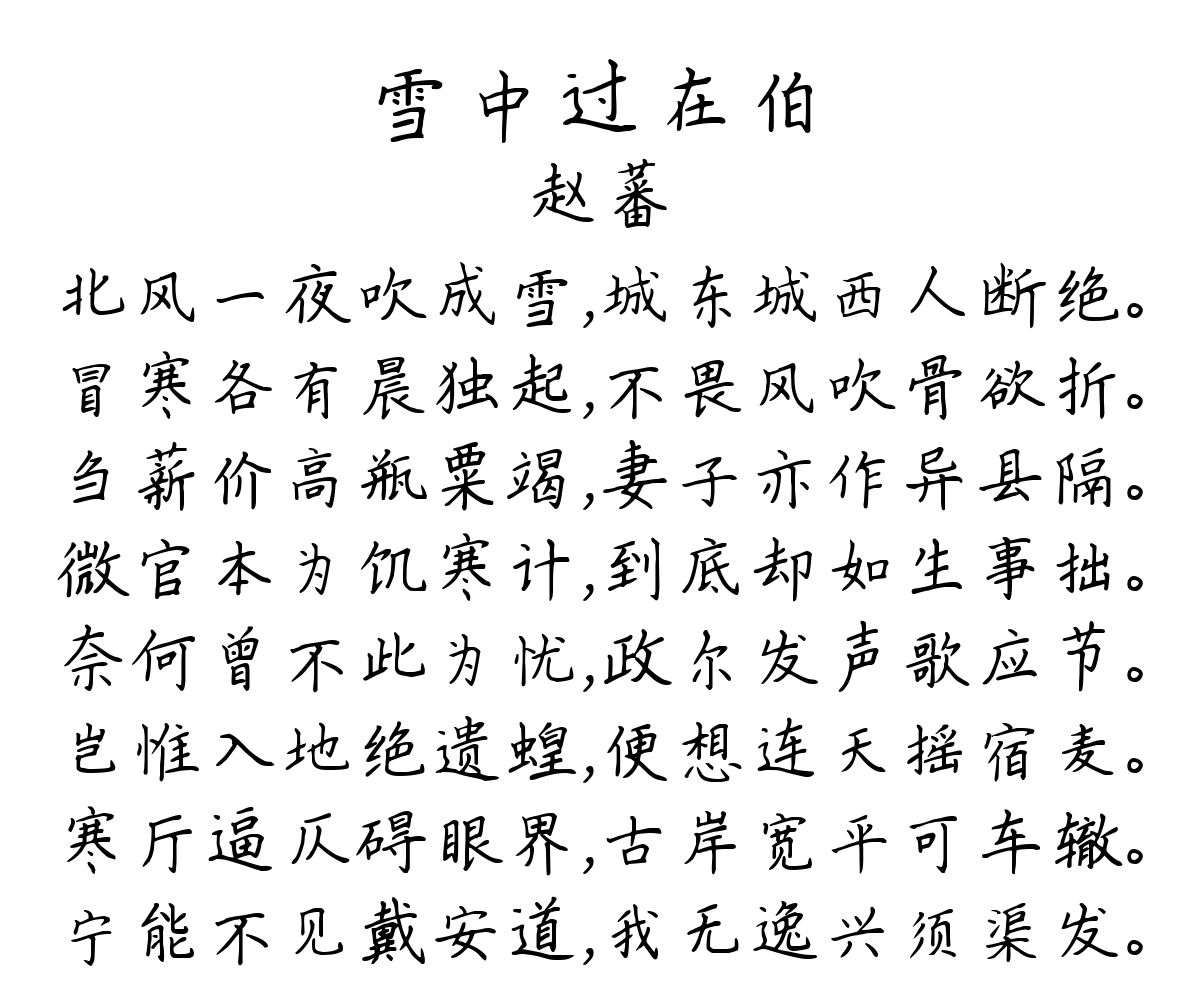 雪中过在伯
赵蕃
北风一夜吹成雪,城东城西人断绝。
冒寒各有晨独起,不畏风吹骨欲折。
刍薪价高瓶粟竭,妻子亦作异县隔。
微官本为饥寒计,到底却如生事拙。
奈何曾不此为忧,政尔发声歌应节。
岂惟入地绝遗蝗,便想连天摇宿麦。
寒厅逼仄碍眼界,古岸宽平可车辙。
宁能不见戴安道,我无逸兴须渠发。